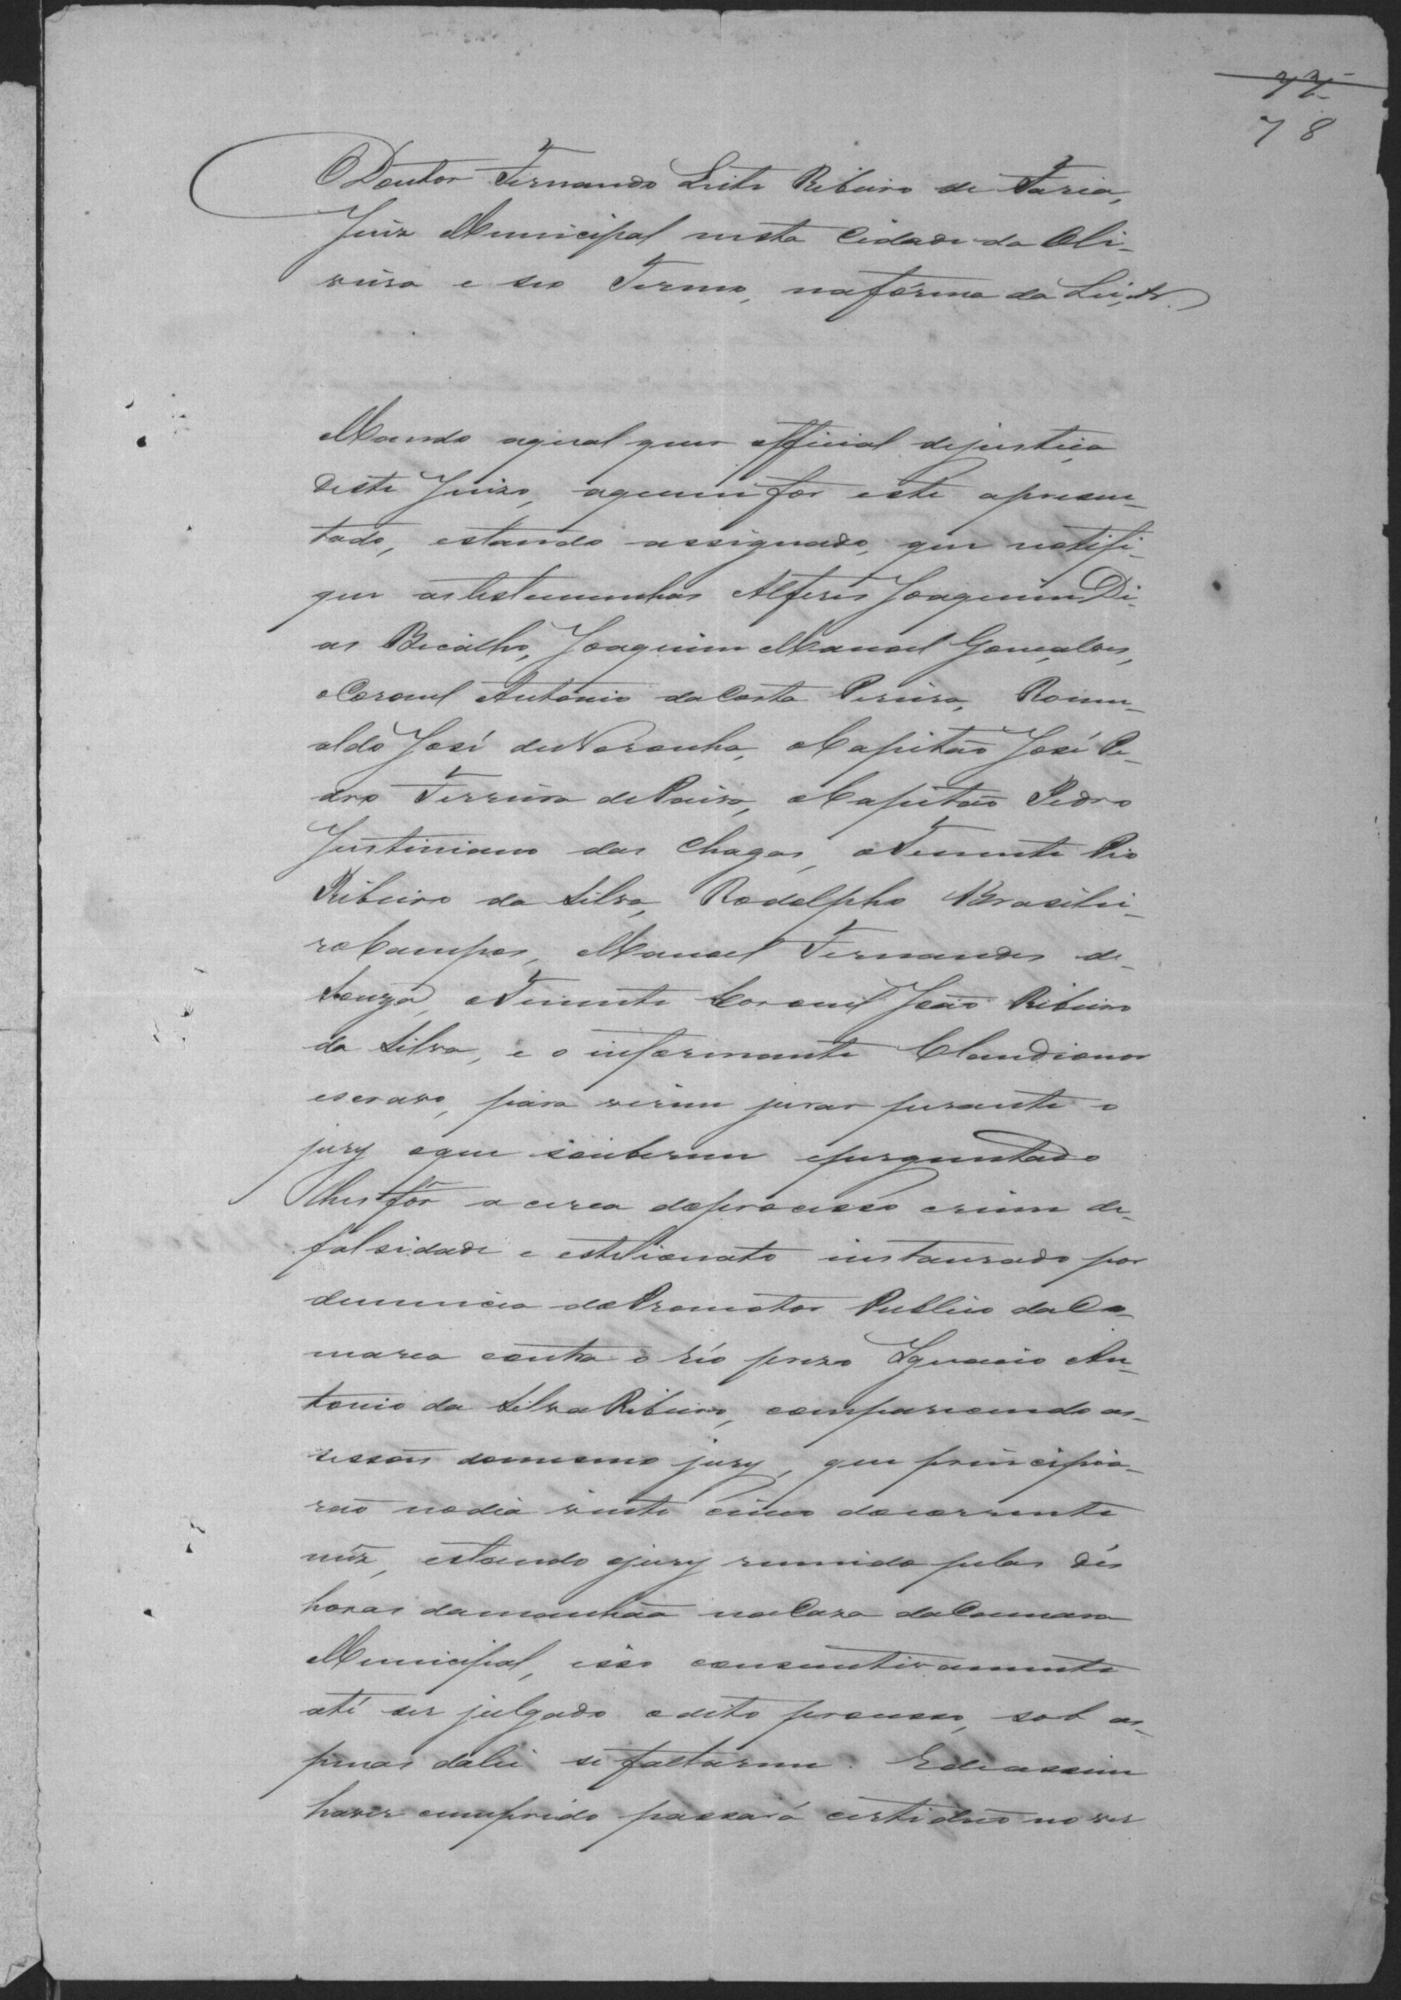 77
78
O Doutor Fernando Leite Ribeiro de Faria,
Juiz Municipal nesta Cidade da Oli-
veira e seo Termo, na fórma da Lei, &.
Mando aqual quer official dejustiça
deste Juizo, aquem fôr este apresen-
tado, estando assignado, que notifi-
que as testemunhas Alferes Joaquim Di-
as Bicalho, Joaquim Manoel Gonçalves,
o Coronel Antonio da Costa Pereira, Romu-
aldo José de Noronha, o Capitão José Pe-
dro Ferreira de Paiva, o Capitão Pedro
Justiniano das Chagas, o Tenente Pio
Ribeiro da Silva, Rodolpho Brasilei-
ro Campos, Manoel Fernandes de
Souza, o Tenente Coronel João Ribeiro
da Silva, e o informante Claudionor
escravo, para virem jurar perante o
jury oque souberem eperguntado
lhes fôr a cerca doprocesso crime de
falsidade e estelionato instaurado por
denuncia do Promotor Publico da Co-
marca contra o réo prezo Ignacio An-
tonio da Silva Ribeiro, comparecendo as
sessões domesmo jury, que principia-
rão nodia vinte cinco docorrente
mêz, estando ojury reunido pelas dés
horas damanhãa na Caza da Camara
Municipal, isso consecutivamente
até ser julgado o dito processo, sob as
penas dalei se faltarem. E de assim
haver cumprido passará certidão no ver